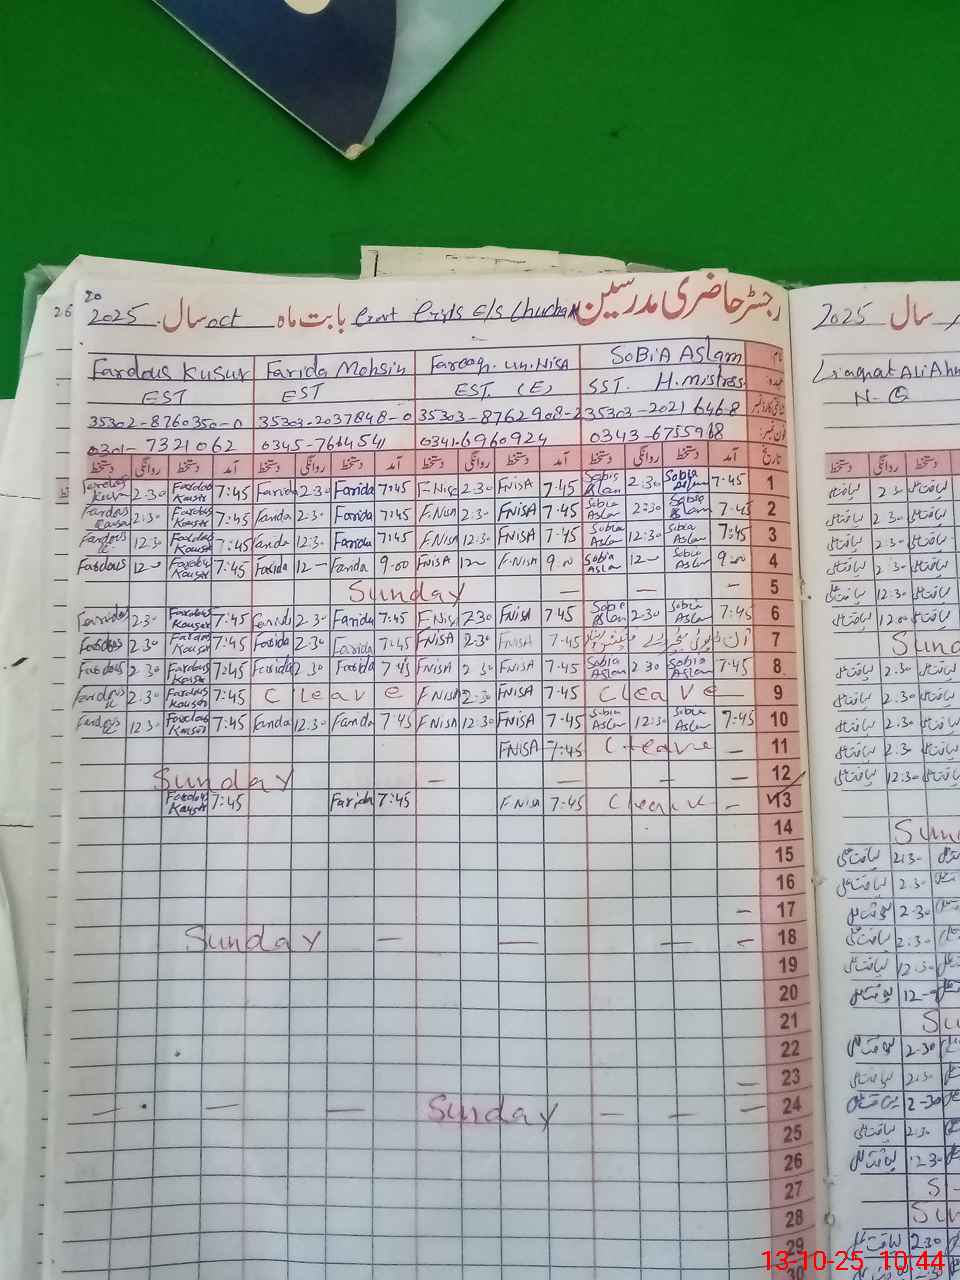 رجسٹر حاضری مدرسین Govt Girls E/S بابت ماہ oct سال 2025
20
26
نام SoBiA Aslam Farooq. un. NisA Farida Mohsin Fardous Kusur
عہدہ SST. H.mistress EST. (E) EST EST
35303-2021646-8 35303-8762908-2 35303-2037848-0 35302-8760350-0
فون نمبر 0343-6755968 0341-6960924 0345-7664541 0301-7321062
تاریخ آمد دستخط روانگی دستخط آمد دستخط روانگی دستخط آمد دستخط روانگی دستخط آمد دستخط روانگی دستخط
1 7-45 Sobia Aslam 2:30 Sobia Aslam 7.45 FNISA 2:30 F-Nisa 7:45 Farida 2:30 Farida 7:45 Fardous Kausr 2:30 Fardous Kusur
2 7-45 Sobia Aslam 2:30 Sobia Aslam 7.45 FNISA 2:30 F.Nisa 7:45 Farida 2:30 Farida 7:45 Fardous Kausr 2:30 Fardous Kausar
3 7:45 Sobia Aslam 12:30 Sobia Aslam 7.45 FNISA 12:30 F.Nisa 7:45 Farida 12:30 Farida 7:45 Fardous Kausr 12:30 Fardous K
4 9:00 Sobia Aslam 12- Sobia Aslam 9:00 F-NISA 12- FNISA 9.00 Farida 12- Farida 7:45 Fardous Kausr 12- Fardous
5 - - - Sunday
6 7:45 Sobia Aslam 2:30 Sobia Aslam 7.45 FNisA 2:30 F.Nisa 7:45 Farida 2:30 Farida 7:45 Fardous Kausar 2:30 Farida
7 7.45 FNISA 2:30 FNISA 7:45 Farida 2:30 Farida 7:45 Fardous Kausar 2:30 Fardous
8 7:45 Sobia Aslam 2:30 Sobia Aslam 7.45 FNISA 2:30 FNISA 7:45 Farida 2:30 Farida 7:45 Fardous Kausr 2:30 Fardous
9 C Leave - 7.45 FNISA 2:30 F.NISA C Leave 7:45 Fardous Kausar 2:30 Fardous K
10 7:45 Sobia Aslam 12:30 Sobia Aslam 7.45 FNISA 12:30 F.Nisa 7:45 Farida 12:30 Farida 7:45 Fardous Kausar 12:30 Fardous
11 - C-Leave 7:45 FNISA
12 - - - - Sunday
13 - C leave 7:45 F.Nisa 7:45 Farida 7:45 Fardous Kausar
14
15
16
17 -
18 - - - - Sunday
19
20
21
22
23 -
24 - - - Sunday - - -
25
26
27
28
29
30
2025 سال
Liaqat Ali
N-Q
دستخط روانگی دستخط
لیاقت علی 2:30 لیاقت علی
لیاقت علی 2:30
لیاقت علی 2:30
لیاقت علی 2:30
لیاقت علی 12:30
لیاقت علی 12:00
Sund
لیاقت علی 2:30
لیاقت علی 2:30
لیاقت علی 2:30
لیاقت علی 2:30
لیاقت علی 12:30
Sun
لیاقت علی 2:30
لیاقت علی 2:30
لیاقت علی 2:30
لیاقت علی 2:30
لیاقت علی 12:30
لیاقت علی 12-
Su
لیاقت علی 2:30
لیاقت علی 2:30
لیاقت علی 2-30
لیاقت علی 2:30
لیاقت علی 12:30
S
Su
لیاقت علی 2:30
13-10-25 10:44